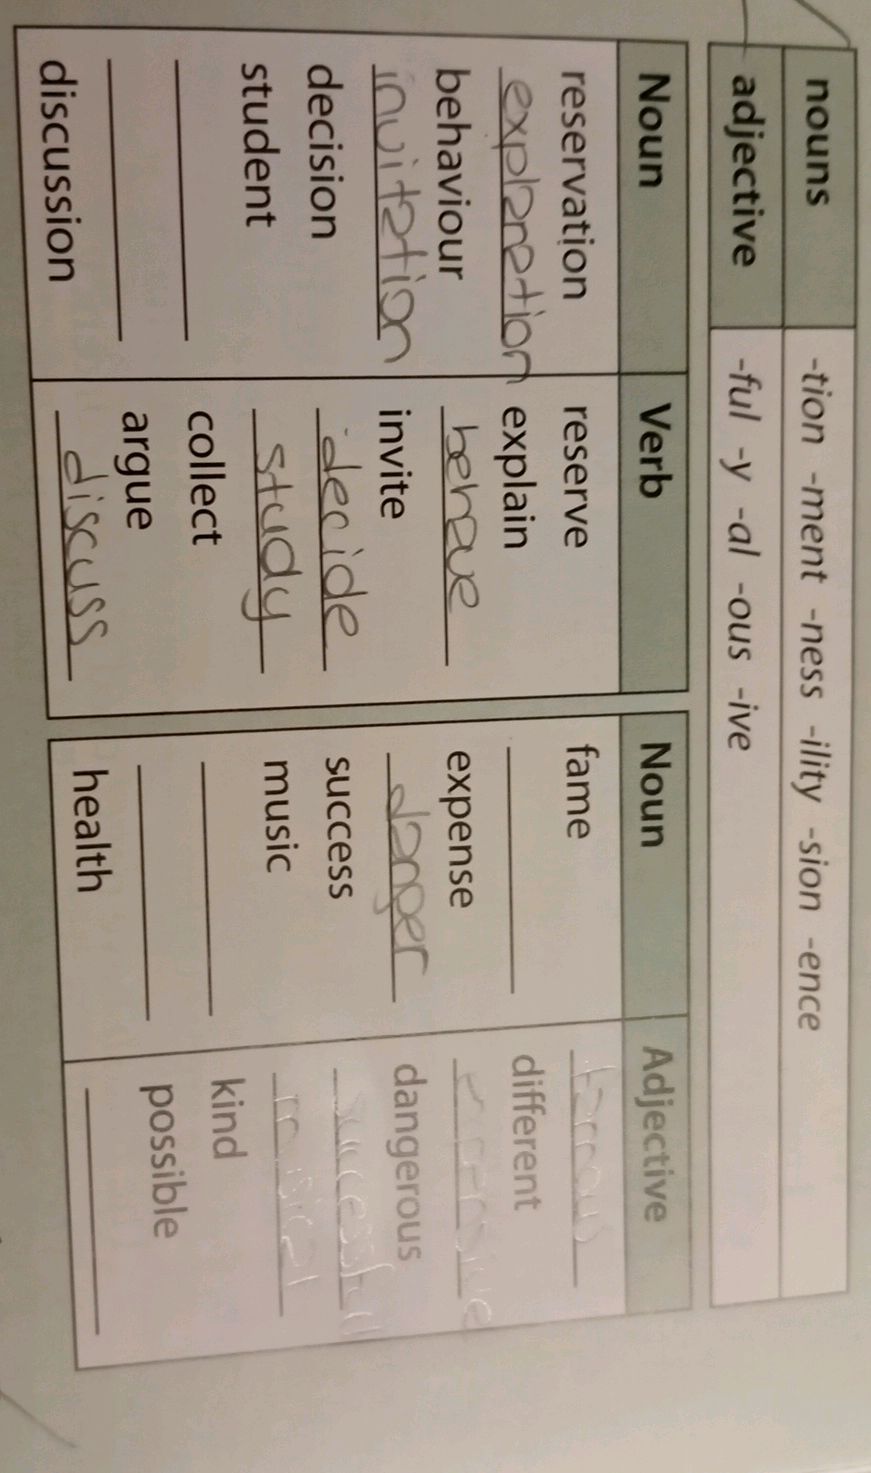 nouns -tion -ment -ness -ility -sion -ence
adjective -ful -y -al -ous -ive
Noun Verb
reservation reserve
explanation explain
behaviour behave
invitation invite
decision decide
student study
collect
argue
discussion discuss
Noun Adjective
fame famous
different
expense expensive
danger dangerous
success successful
music musical
kind
possible
health